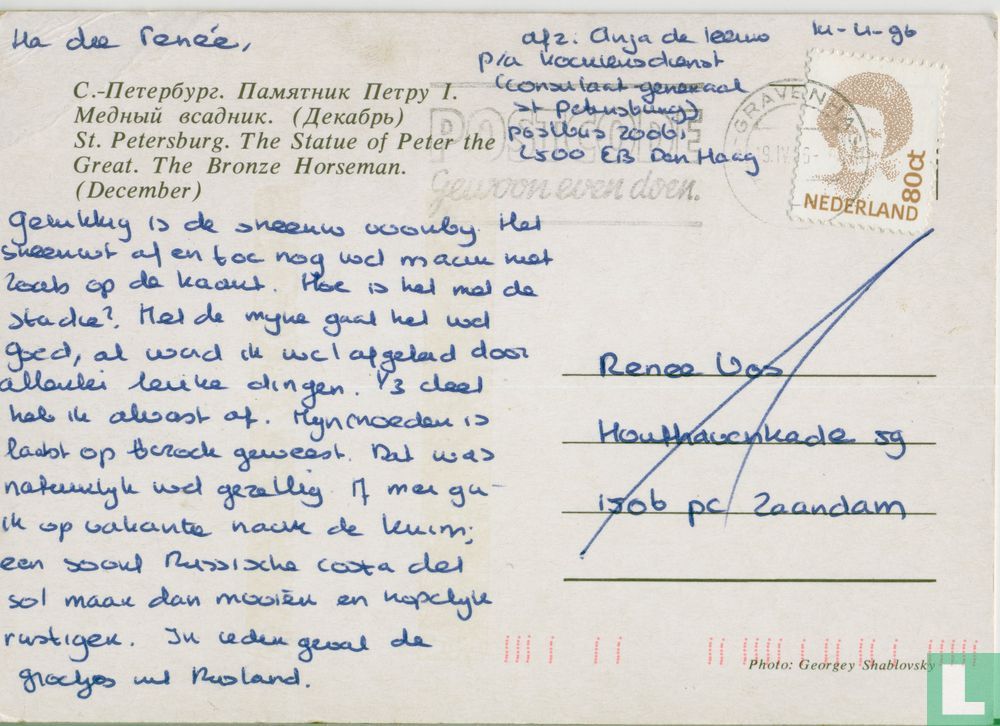 Ha die Renée,
14-4-96
afz: Anja de
p/a Koeriersdienst
(Consulaat generaal
St Petersburg)
postbus 20061
2500 EB Den Haag
С.-Петербург. Памятник Петру I.
Медный всадник. (Декабрь)
St. Petersburg. The Statue of Peter the
Great. The Bronze Horseman.
(December)
POSTCODE
Gewoon even doen.
GRAVENHAGE
NEDERLAND
80ct
Gelukkig is de sneeuw voorbij. Het
sneeuwt af en toe nog wel maar niet
zoals op de kaart. Hoe is het met de
studie? Met de mijne gaat het wel
goed, al word ik wel afgeleid door
allerlei leuke dingen. 1/3 deel
heb ik alvast af. Mijn moeder is
laatst op bezoek geweest. Dat was
natuurlijk wel gezellig. 17 mei ga
ik op vakantie naar de Krim;
een soort Russische costa del
sol maar dan mooier en hopelijk
rustiger. In ieder geval de
groetjes uit Rusland.
Renee Vos
Houthavenkade 59
1506 PC Zaandam
Photo: Georgey Shablovsky
L